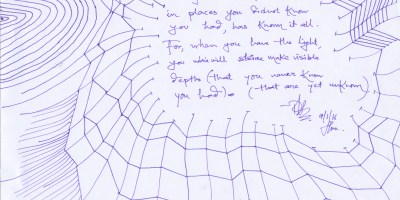 in places you didnot know
you had, has known it all.
For, when you have the light,
you will make visible
depths (that you never knew
you had). (that are yet unknown).